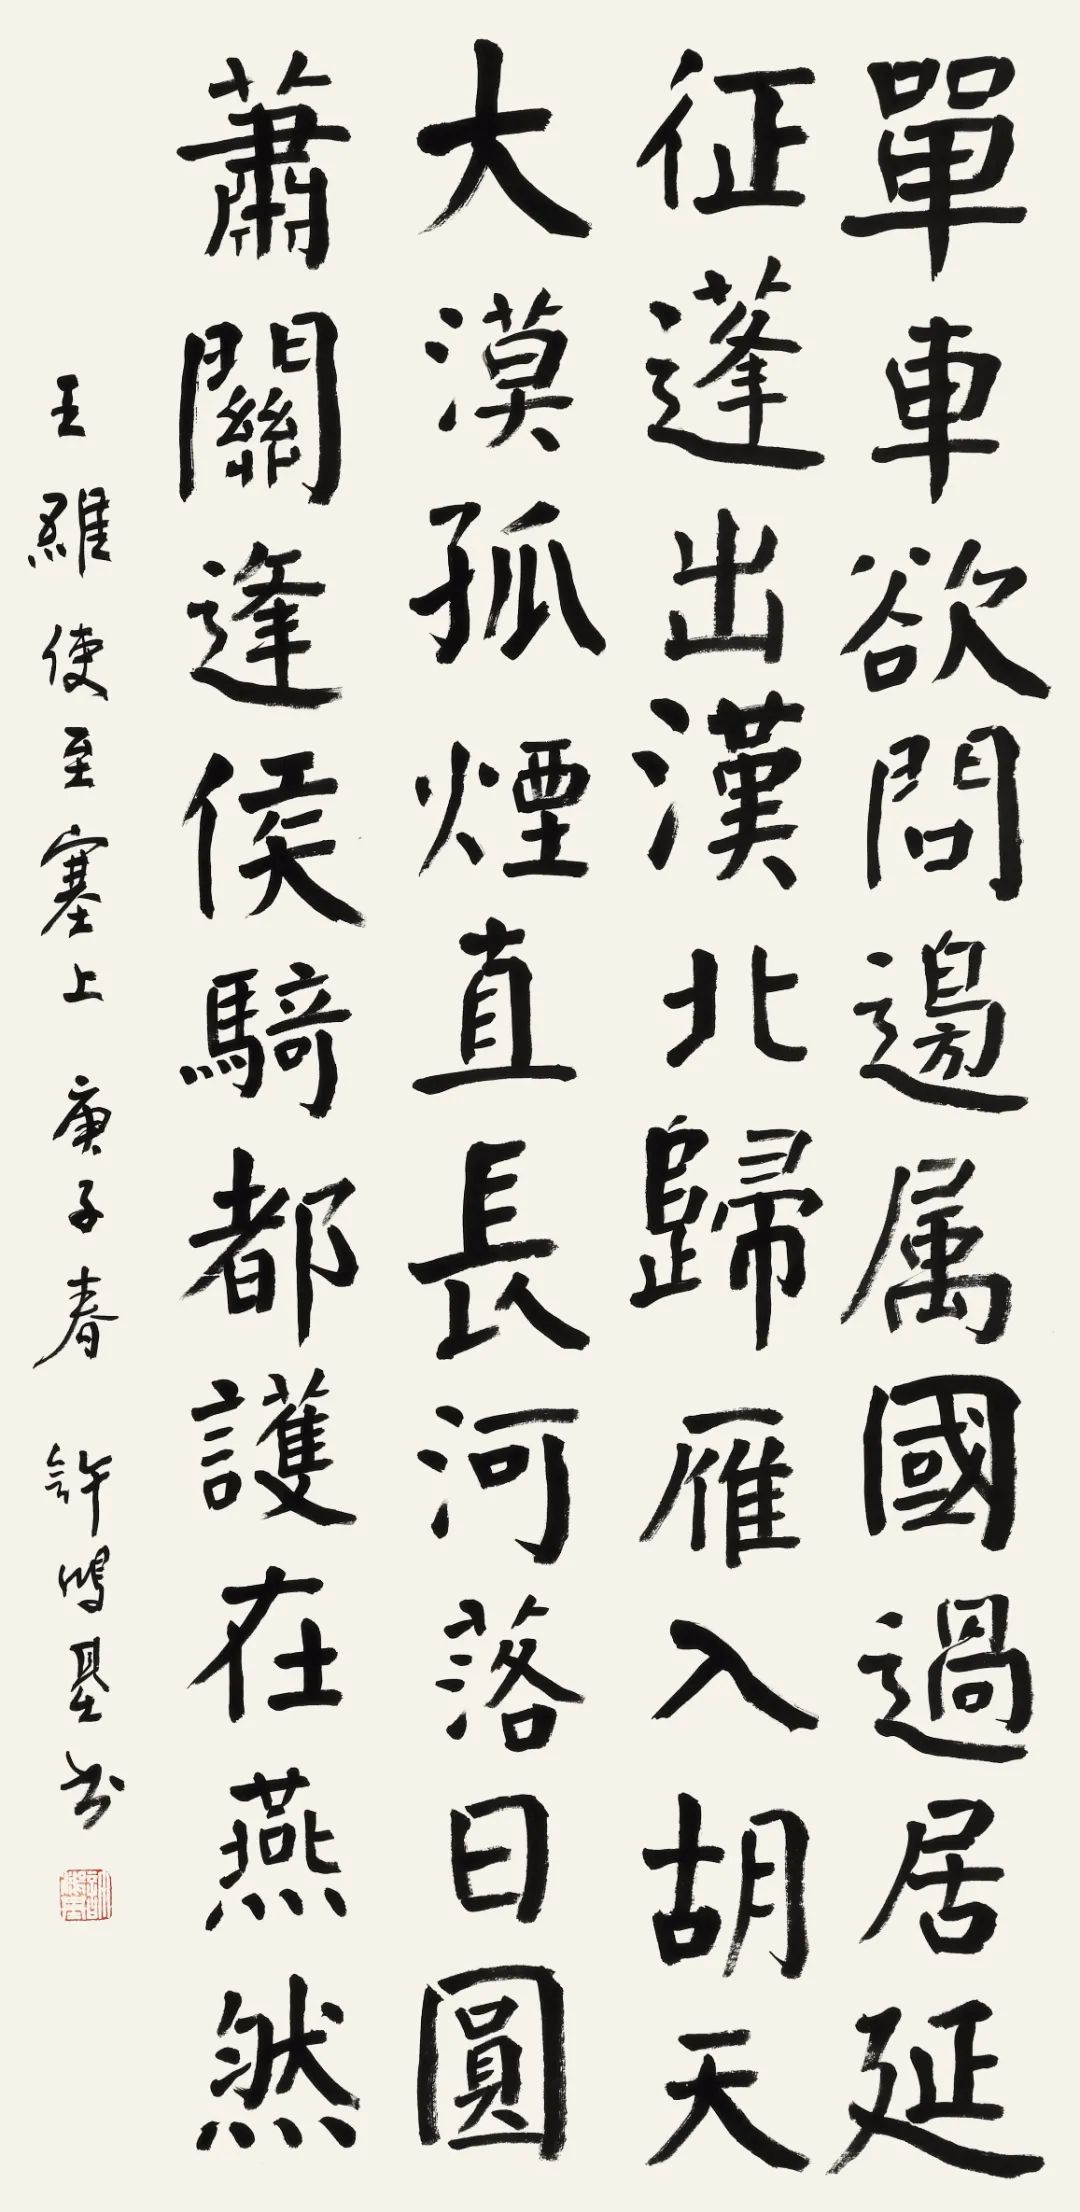 單車欲問邊属國過居延
征蓬出漢北歸雁入胡天
大漠孤煙直長河落日圓
蕭關逢侯騎都護在燕然
王維使至塞上 庚子春 許鴻基书